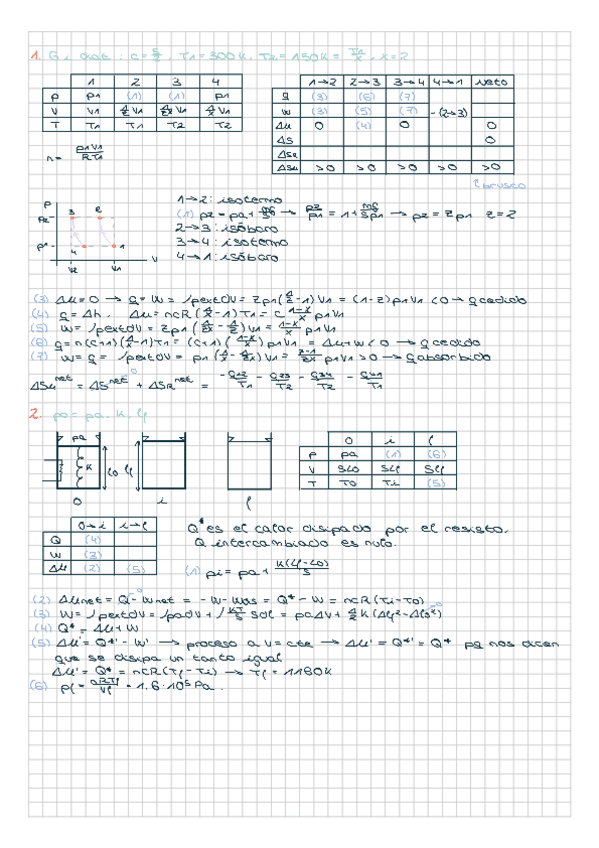 1. Gi diat : c = 5/2 , T1 = 300K , T2 = 150K = T1/x , x = 2
1 2 3 4
P p1 (1) (1) p1
V V1 1/z V1 1/zx V1 1/x V1
T T1 T1 T2 T2
n = p1V1/RT1
1→2 2→3 3→4 4→1 neto
Q (3) (6) (7)
W (3) (5) (7) -(2→3)
Δu 0 (4) 0 0
ΔS 0
ΔSR
ΔSu >0 >0 >0 >0 >0
brusco
P
P2 3 2
P1 4 1
V2 V1 V
1→2: isotermo
(1) p2 = p1 + mg/S → p2/p1 = 1 + mg/Sp1 → p2 = z p1 z = 2
2→3: isóbaro
3→4: isotermo
4→1: isóbaro
(3) Δu = 0 → Q = W = ∫pextdV = zp1(1/z - 1)V1 = (1-z)p1V1 < 0 → Q cedido
(4) Q = Δh . Δu = ncR(1/x - 1)T1 = c 1-x/x p1V1
(5) W = ∫pextdV = zp1(1/zx - 1/z)V1 = 1-x/x p1V1
(6) Q = n(c+1)(1/x - 1)T1 = (c+1)(1-x/x) p1V1 = Δu + W < 0 → Q cedido
(7) W = Q = ∫pextdV = p1(1/x - 1/zx)V1 = z-1/zx p1V1 > 0 → Q absorbido
ΔSu^net = ΔS^net + ΔSR^net = -Q12/T1 - Q23/T2 - Q34/T2 - Q41/T1
2. p0 = pa . K . lf
pa K l0 lf
0 i f
0 i f
P pa (1) (6)
V Sl0 Slf Slf
T T0 Ti (5)
0→i i→f
Q (4)
W (3)
Δu (2) (5)
Q* es el calor disipado por el resisto.
Q intercambiado es nulo.
(1) pi = pa + K(lf-l0)/S
(2) Δunet = Q - Wnet = -W - Wdis = Q* - W = ncR(Ti-T0)
(4) Q* = Δu + W
(5) Δu' = Q*' - W' → proceso a V = cte → Δu' = Q*' = Q* pq nos dicen
que se disipa un tanto igual
Δu' = Q* = ncR(Tf-Ti) → Tf = 1180K
(6) pf = nRTf/Vf = 1.6·10^5 Pa.